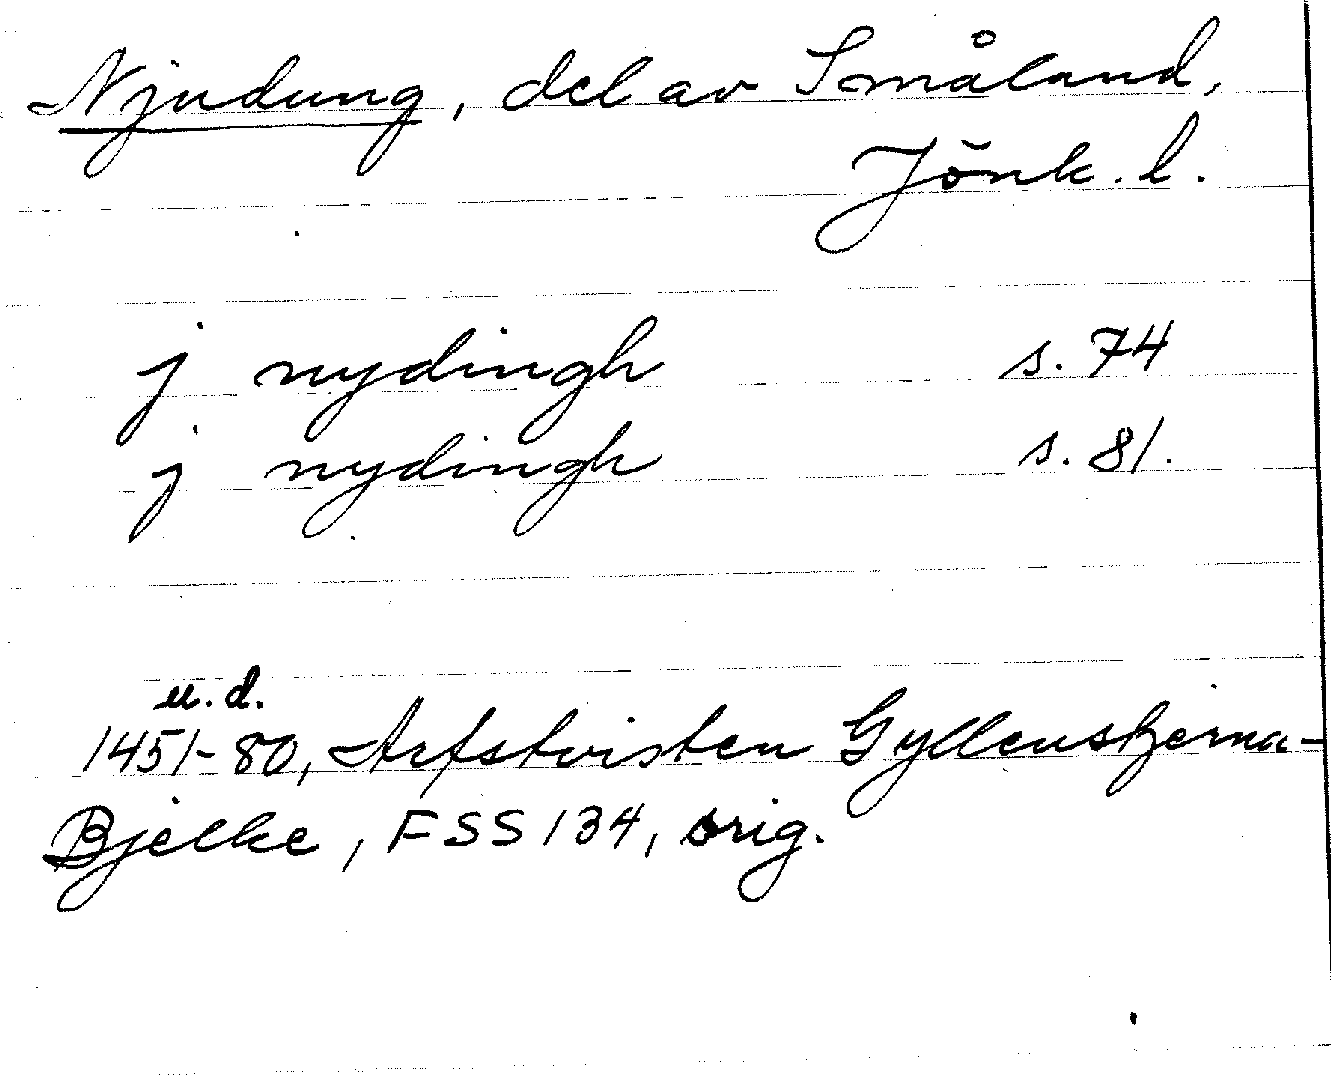 Njudung, del av Småland,
Jönk. l.
j nydingh s. 74
j nydingh s. 81.
u. d.
1451-80, Arfstvisten Gyllenstjerna-
Bjelke, FSS 134, orig.